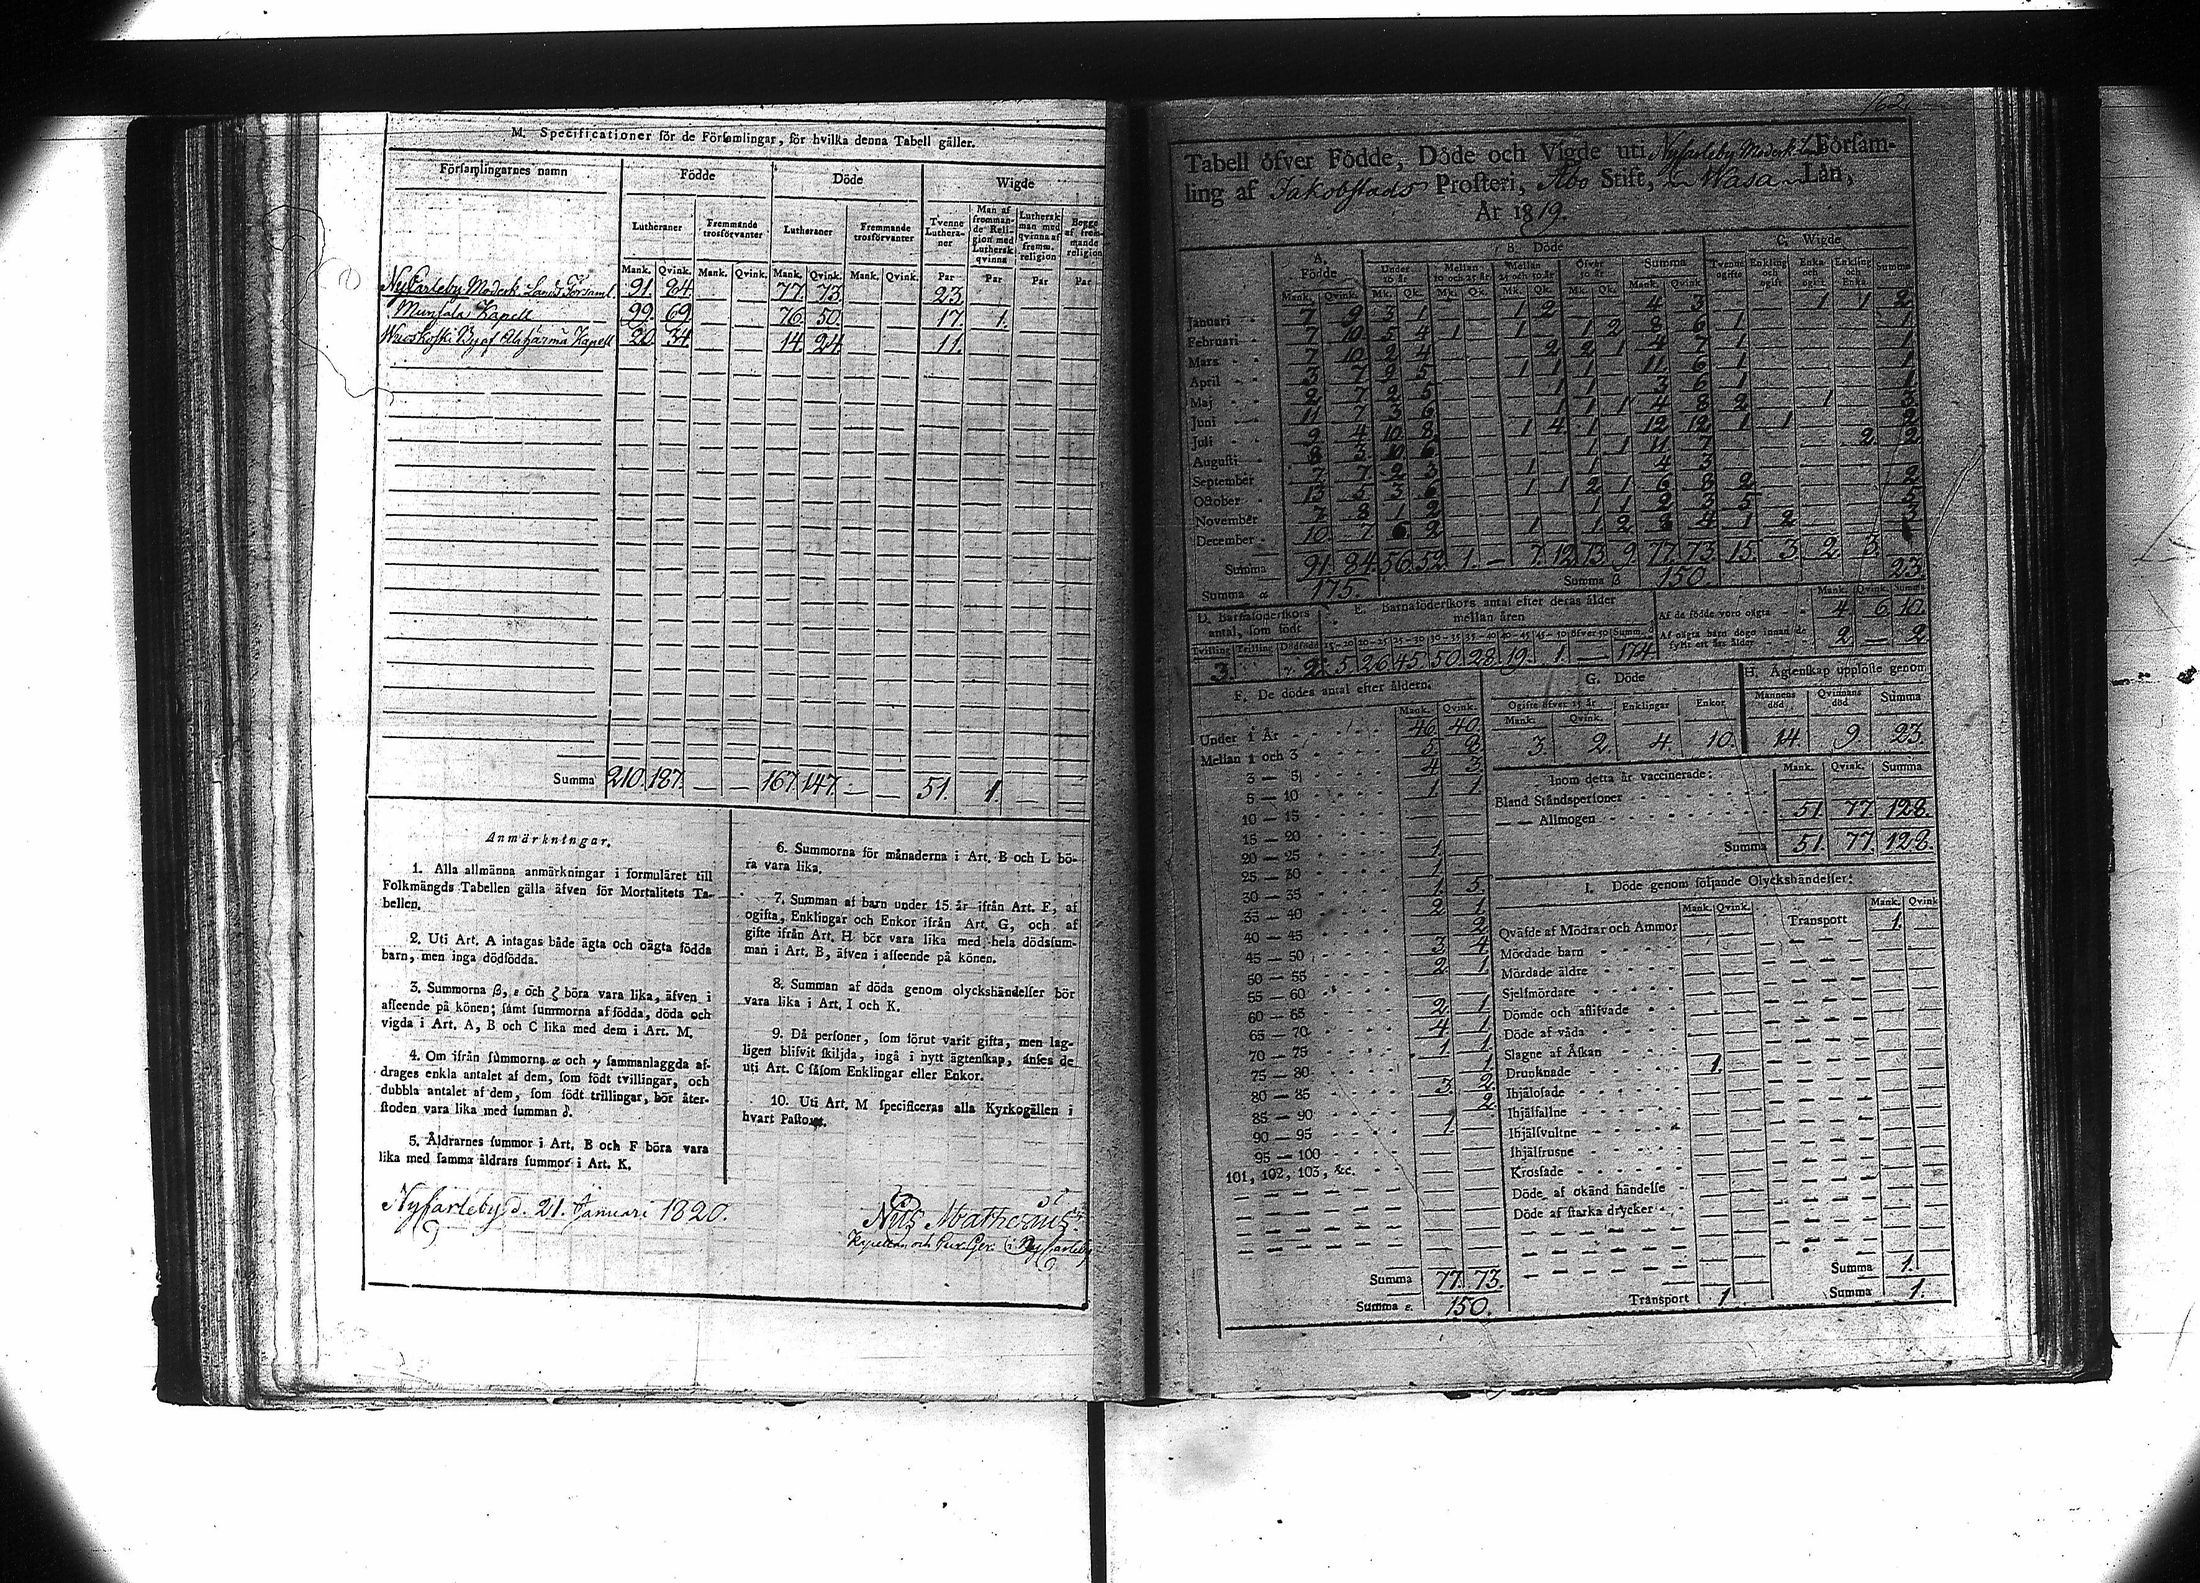 M. Specificationer för de Församlingar, för hvilka denna Tabell gäller.
Församlingarnes namn Födde Döde Wigde
Lutheraner Fremmande trosförvanter Lutheraner Fremmande trosförvanter Tvenne Lutheraner Man af frommande Religion med Luthersk qvinna Luthersk man med qvinna af fremm. religion Begge af frommande religion
Mank. Qvink. Mank. Qvink. Mank. Qvink. Mank. Qvink. Par Par Par Par
NyCarleby Moderk. Lands Församl. 91. 84 — — 77. 73. — — 23. — — —
Munsala Kapell 99. 69 — — 76. 50. — — 17. 1. — —
Wuoskoski By af Alahärmä Kapell 20. 34 — — 14. 24. — — 11. — — —
Summa 210. 187. — — 167. 147. — — 51. 1. — —
Anmärkningar.
1. Alla allmänna anmärkningar i formuläret till
Folkmängds Tabellen gälla äfven för Mortalitets Ta-
bellen.
2. Uti Art. A intagas både ägta och oägta födda
barn, men inga dödfödda.
3. Summorna β, ε och ζ böra vara lika, äfven i
afseende på könen; samt summorna af födda, döda och
vigda i Art. A, B och C lika med dem i Art. M.
4. Om ifrån summorna α och γ sammanlaggda af-
drages enkla antalet af dem, som födt tvillingar, och
dubbla antalet af dem, som födt trillingar, bör åter-
stoden vara lika med summan δ.
5. Åldrarnes summor i Art. B och F böra vara
lika med samma åldrars summor i Art. K.
6. Summorna för månaderna i Art. B och L bö-
ra vara lika.
7. Summan af barn under 15 år ifrån Art. F, af
ogifta, Enklingar och Enkor ifrån Art. G, och af
gifte ifrån Art. H bör vara lika med hela dödssum-
man i Art. B, äfven i afseende på könen.
8. Summan af döda genom olyckshändelser bör
vara lika i Art. I och K.
9. Då personer, som förut varit gifta, men lag-
ligen blifvit skiljda, ingå i nytt ägtenskap, anses de
uti Art. C såsom Enklingar eller Enkor.
10. Uti Art. M specificeras alla Kyrkogällen i
hvart Pastorat.
Nycarleby d. 21. Januari 1820.
Nils Matheau
162.
Tabell öfver Födde, Döde och Vigde uti Nycarleby Moderk. Lands Försam-
ling af Jakobstads Prosteri, Åbo Stift, Wasa Län,
År 1819.
A. Födde B. Döde C. Wigde
Under 10 år Mellan 10 och 25 år Mellan 25 och 50 år Öfver 50 år Summa Tvenne ogifte Enkling och ogift Enka och ogift Enkling och Enka Summa
Mank. Qvink. Mk. Qk. Mk. Qk. Mk. Qk. Mk. Qk. Mank. Qvink.
Januari 7 9 3 1 1 2 4 3 1 1 2
Februari 7 10 5 4 1 1 1 2 8 6 1 1
Mars 7 10 2 4 2 2 1 4 7 1 1
April
Maj
Juni
Juli
Augusti
September
October
November
December
Summa 91. 84. 56. 52. 1. — 7. 12. 13. 9. 77. 73. 15. 3. 2. 3. 23.
Summa α 175. Summa β 150.
D. Barnaföderskors antal, som födt
Tvilling Trilling Dödfödd
3. γ 2.
E. Barnaföderskors antal efter deras ålder mellan åren
15-20 20-25 25-30 30-35 35-40 40-45 45-50 öfver 50 Summ. δ
5. 26. 45. 50. 28. 19. 1. — 174.
Mank. Qvink. Summa
Af de födde voro oägta 4. 6. 10.
Af oägta barn dogo innan de fyllt ett års ålder 2. — 2.
F. De dödes antal efter åldern.
Mank. Qvink.
Under 1 År 46. 40.
Mellan 1 och 3 5. 8.
3 — 5 4. 3.
5 — 10 1. 1.
10 — 15
15 — 20
20 — 25 1.
25 — 30 1.
30 — 35 1. 5.
35 — 40 2. 1.
40 — 45 2.
45 — 50 3. 4.
50 — 55 2. 1.
55 — 60
60 — 65 2. 1.
65 — 70 4. 1.
70 — 75 1. 1.
75 — 80 1.
80 — 85 3. 2.
85 — 90 2.
90 — 95 1.
95 — 100
101, 102, 103, &c.
Summa 77. 73.
Summa ε. 150.
G. Döde
Ogifte öfver 15 år Enklingar Enkor
Mank. Qvink.
3. 2. 4. 10.
H. Ägtenskap upplöste genom
Mannens död Qvinnans död Summa
14. 9. 23.
Inom detta år vaccinerade: Mank. Qvink. Summa
Bland Ståndspersoner
— — Allmogen 51. 77. 128.
Summa 51. 77. 128.
I. Döde genom följande Olyckshändelser:
Mank. Qvink. Mank. Qvink
Qväfde af Mödrar och Ammor Transport 1.
Mördade barn
Mördade äldre
Sjelfmördare
Dömde och aflifvade
Döde af våda
Slagne af Åskan
Drunknade 1.
Ihjälosade
Ihjälfallne
Ihjälsvultne
Ihjälfrusne
Krossade
Döde af okänd händelse
Döde af starka drycker
Summa 1.
Transport 1. Summa 1.